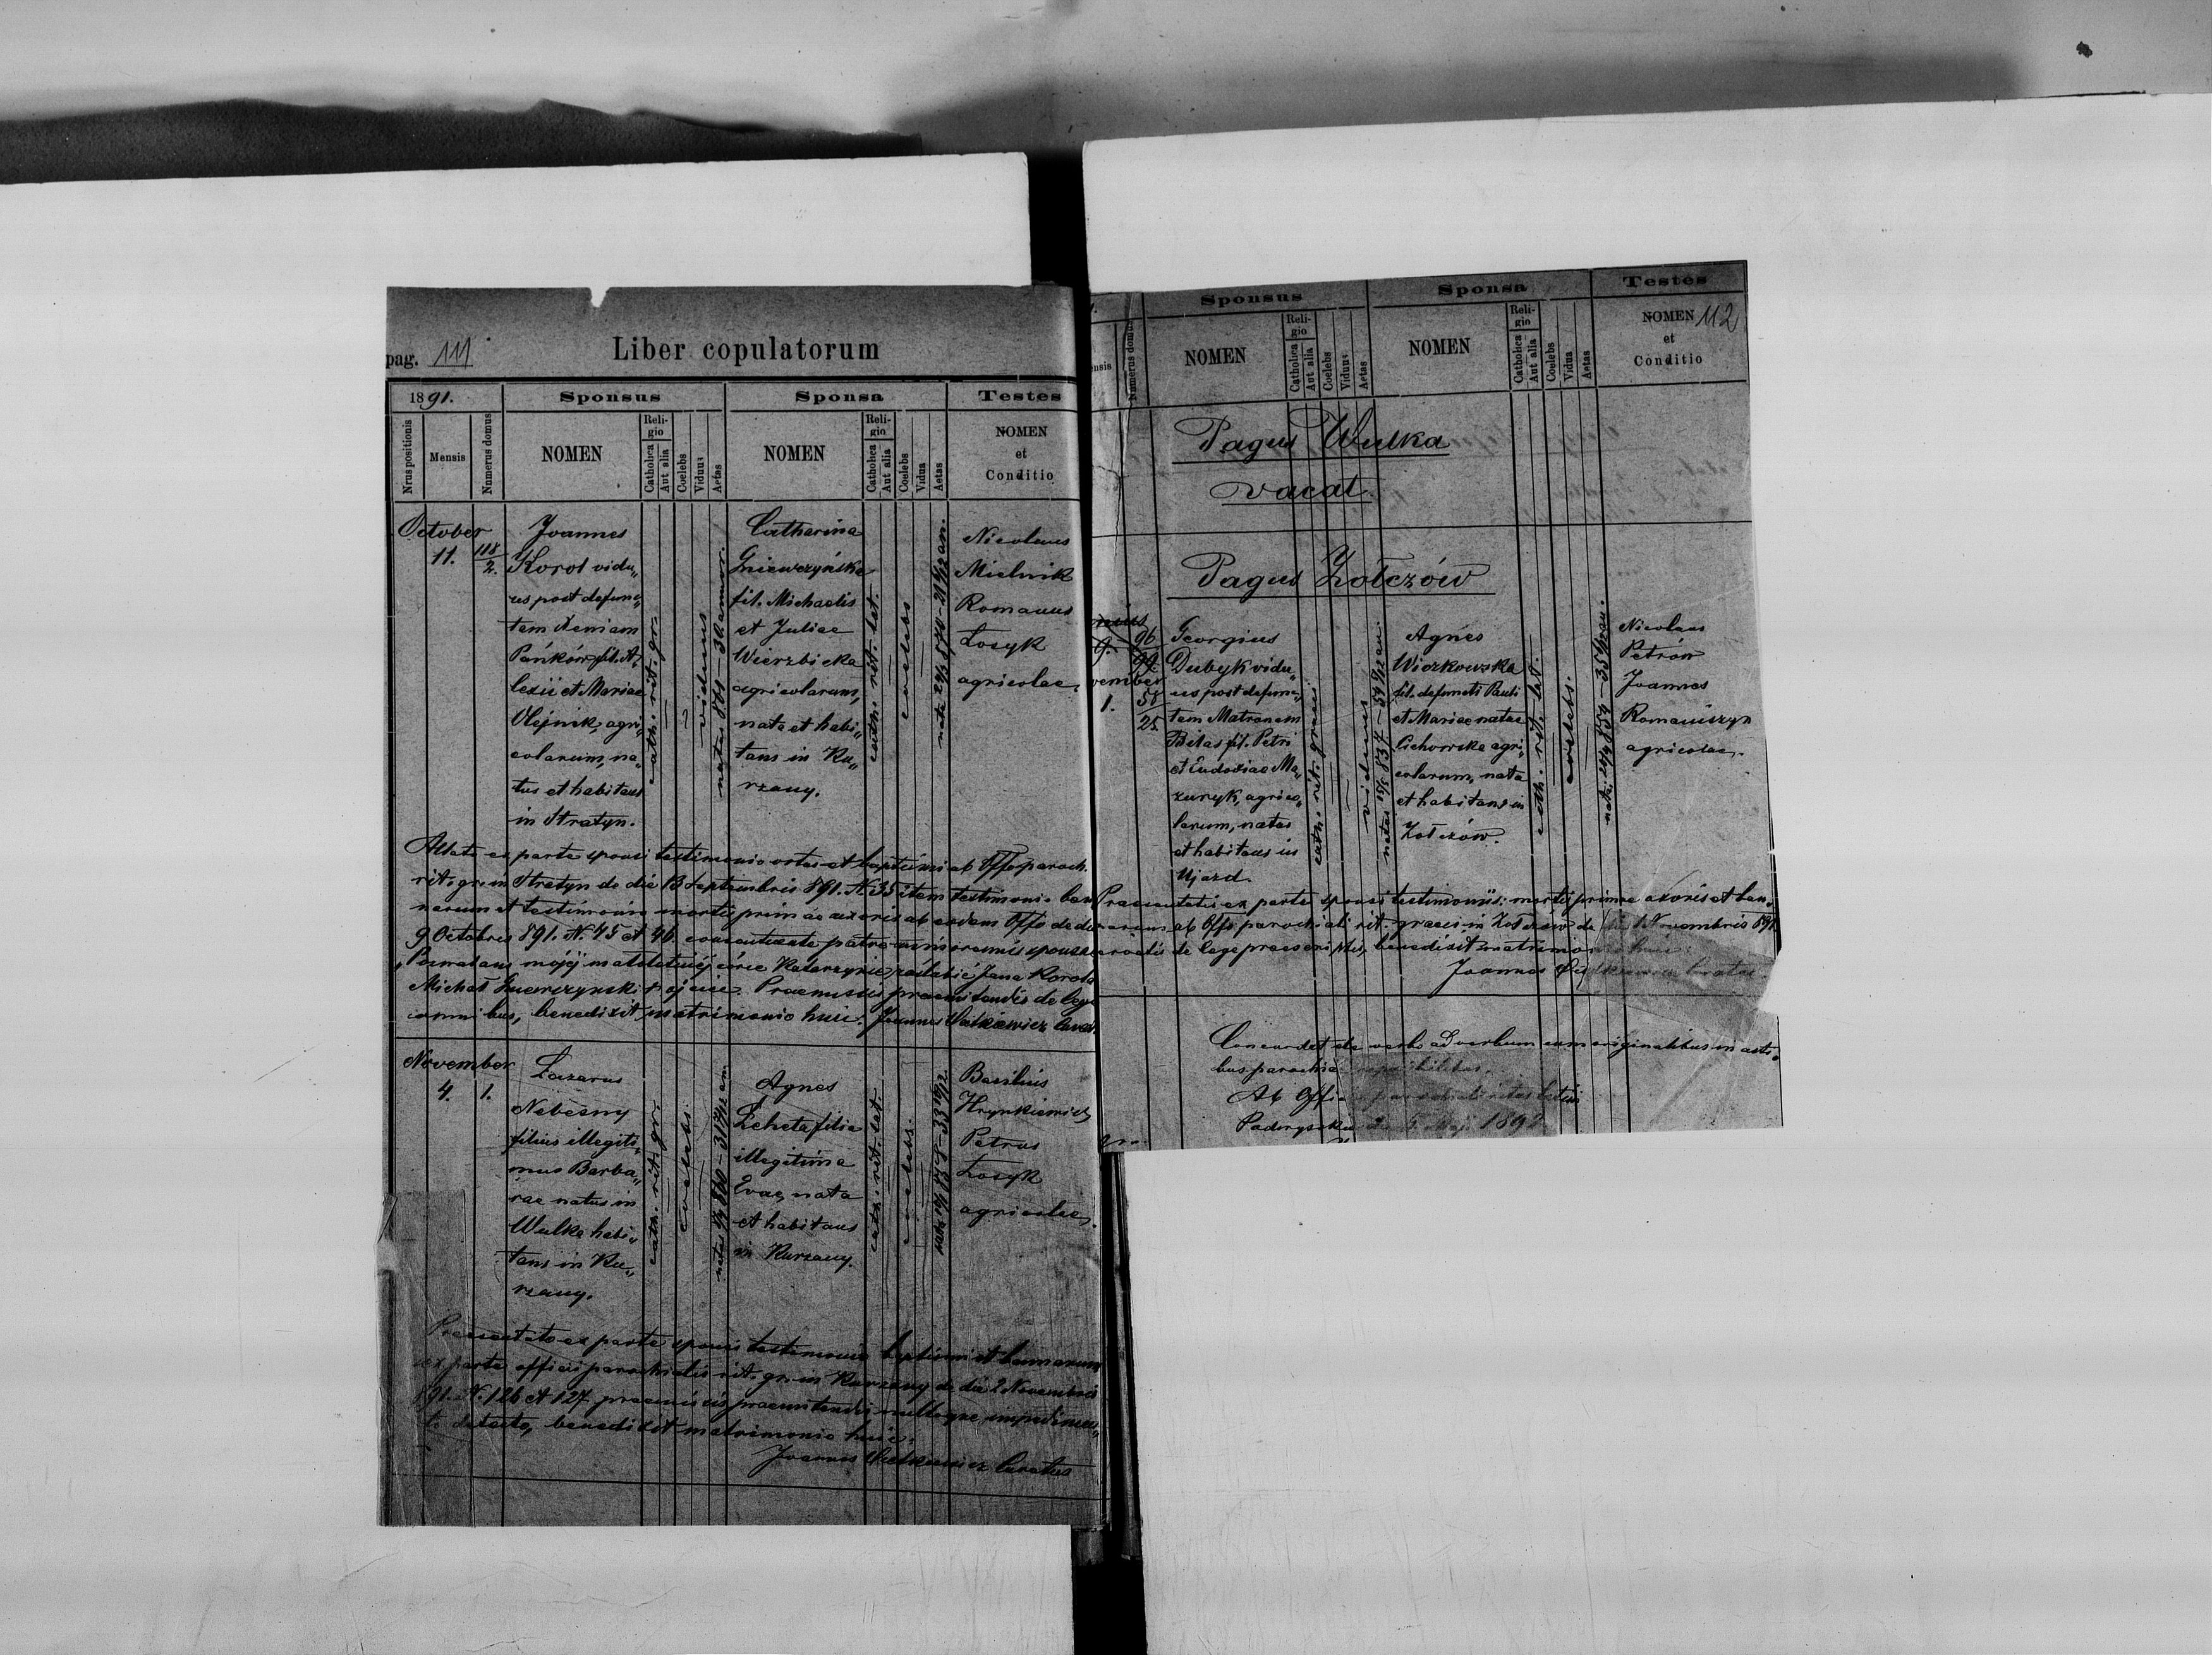 pag. 111
Liber copulatorum
1891.
Sponsus
Sponsa
Testes
Nrus positionis
Mensis
Numerus domus
NOMEN
Religio
Catholica
Aut alia
Coelebs
Viduus
Aetas
NOMEN
Religio
Catholica
Aut alia
Coelebs
Vidua
Aetas
NOMEN
et
Conditio
October
11.
118/2.
Joannes
Korol vidu„
us post defunc„
tam Xeniam
Pańków fil. A„
lexii et Mariae
Olejnik, agri„
colarum, na„
tus et habitans
in Stratyn.
cath. rit. gr.
viduus
Catharina
Gniewczyńska
fil. Michaelis
et Juliae
Wierzbicka
agricolarum,
nata et habi„
tans in Ku„
rzany.
cath. rit. lat.
coelebs
Nicolaus
Mielnik
Romanus
Łosyk
agricolae.
Allato ex parte sponsi testimonio ortus et baptismi ab Offo paroch.
rit. gr. in Stratyn de die 13 Septembris 891. N. 35 item testimonio ban
norum et testimonio mortis primae uxoris ab eodem Offo de de
9 Octobris 891. N. 45 et 46. consentiente patre minorennis sponsae
„Pozwalam mojej małoletniej córce Katarzynie zaślubić Jana Korola
Michał Gniewczyński ojciec. Praemissis praemittendis de lege
omnibus, benedixit matrimonio huic. Joannes Walkiewicz Curat.
November
4.
1.
Lazarus
Nebesny
filius illegiti„
mus Barba„
rae natus in
Wulka habi„
tans in Ku„
rzany.
cath. rit. gr.
coelebs.
Agnes
Leheta filia
illegitima
Evae, nata
et habitans
in Kurzany.
cath. rit. lat.
coelebs.
Basilius
Hrynkiewicz
Petrus
Łosyk
agricolae.
Praesentato ex parte sponsi testimonio baptismi et bannorum
ex parte officii parochialis rit. gr. in Kurzany de die 2 Novembris
891. N. 126 et 127 praemissis praemittendis nulloque impedimen„
to detecto, benedixit matrimonio huic.
Joannes Walkiewicz Curatus
Sponsus
Sponsa
Testes
Numerus domus
NOMEN
Religio
Catholica
Aut alia
Coelebs
Viduus
Aetas
NOMEN
Religio
Catholica
Aut alia
Coelebs
Vidua
Aetas
NOMEN
et
Conditio
112
Pagus Wulka
vacat.
Pagus Żołczów
9.
96
99
vember
1.
58
25
Georgius
Dubyk vidu„
us post defunc„
tam Matronam
Biłas fil. Petri
et Eudoxiae Ma„
zuryk, agrico„
larum, natus
et habitans in
Ujazd.
cath. rit. graeci
viduus
Agnes
Wiczkowska
fil. defuncti Pauli
et Mariae natae
Cichowska agri„
colarum, nata
et habitans in
Żołczów.
cath. rit. lat.
coelebs.
Nicolaus
Petrów
Joannes
Romaniszyn
agricolae.
Praesentatis ex parte sponsi testimoniis: mortis primae uxoris et ban„
norum ab Offo parochiali rit. graeci in Żołczów de die 1 Novembris 891.
servatis de lege praescriptis, benedixit matrimonio huic.
Joannes Walkiewicz Curatus.
Concordat de verbo ad verbum cum originalibus in acti„
bus parochiae
Ab Officio parochiali rit. latini
Podwysokie 5 Maji 1892